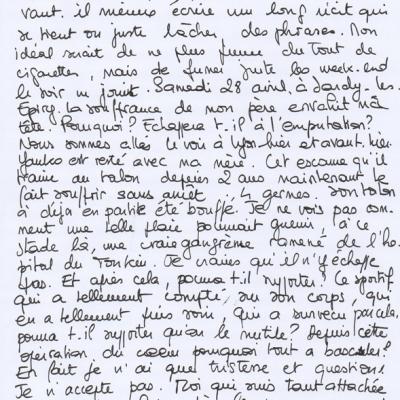 vaut. il mieux écrire un long récit qui
se tient ou juste lâcher des phrases. Mon
idéal serait de ne plus fumer du tout de
cigarettes, mais de fumer juste les week.end
le soir un joint. Samedi 28 avril, à Jandy. les.
Epiry. La souffrance de mon père envahit ma
tête. Pourquoi? Echapera t.il à l'emputation?
Nous sommes allés le voir à Lyon hier et avant.hier.
est resté avec ma mère. Cet escarre qu'il
traine au talon depuis 2 ans maintenant le
fait souffrir sans arrêt .. 4 germes. Son talon
a déjà en partie été bouffé. Je ne vois pas com-
ment une telle plaie pourrait guérir, à ce
stade là, une vraie gangrène ramené de l'hô
pital du Tonkin. Je crains qu'il n'y échappe
pas. Et après cela, pourra t.il supporter! Ce sportif
qui a tellement compté sur son corps, qui
en a tellement pris soin, qui a survécu par cela,
pourra t.il supporter qu'on le mutile? Depuis cette
opération du coeur pourquoi tout a basculé?
En fait je n'ai que tristesse et questions
Je n'accepte pas. Moi qui suis tant attachée